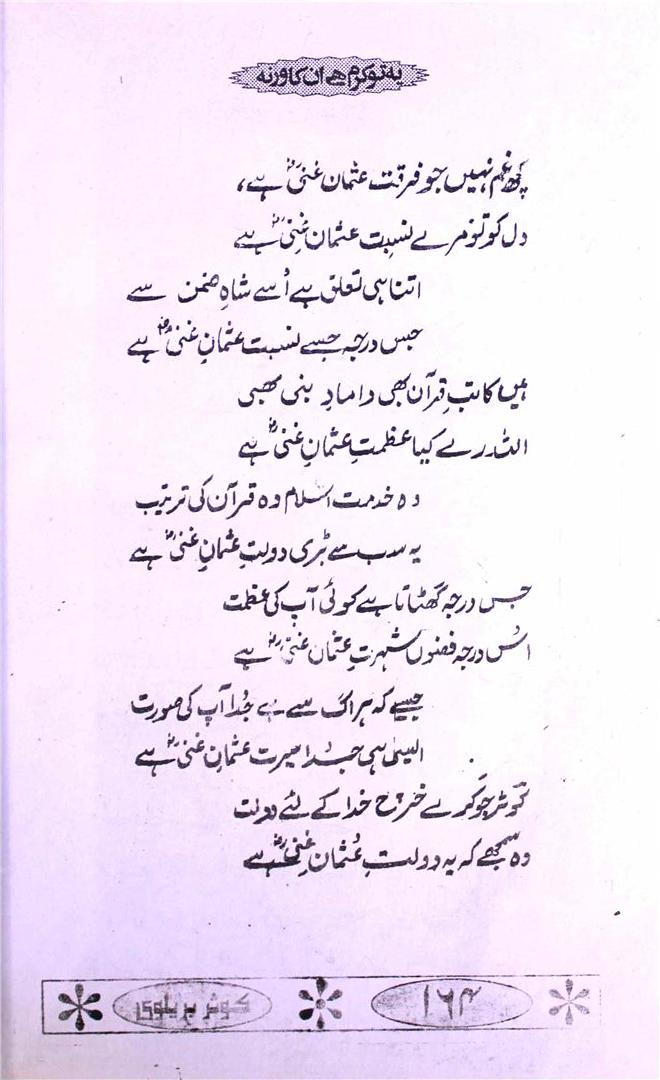 یہ تو کرم ہے ان کا ورنہ
کچھ غم نہیں جو فرقت عثمان غنیؓ ہے،
دل کو تو مرے نسبت عثمان غنیؓ ہے
اتنا ہی تعلق ہے اُسے شاہِ ضمن سے
جس درجہ جسے نسبت عثمانِ غنیؓ ہے
ہیں کاتبِ قرآن بھی دامادِ بنی بھی
اللہ رے کیا عظمتِ عثمانِ غنیؓ ہے
وہ خدمت اسلام وہ قرآن کی ترتیب
یہ سب سے بڑی دولتِ عثمانِ غنیؓ ہے
جس درجہ گھٹاتا ہے کوئی آپ کی عظمت
اُس درجہ فضوں شہرتِ عثمان غنیؓ ہے
جیسے کہ ہر اک سے ہے جُدا آپ کی صورت
ایسی ہی جدا سیرت عثمانِ غنیؓ ہے
کوثر جو کرے خرچ خدا کے لئے دولت
وہ سمجھے کہ یہ دولتِ عُثمانِ غنیؓ ہے
۱۶۴
کوثر بریلوی